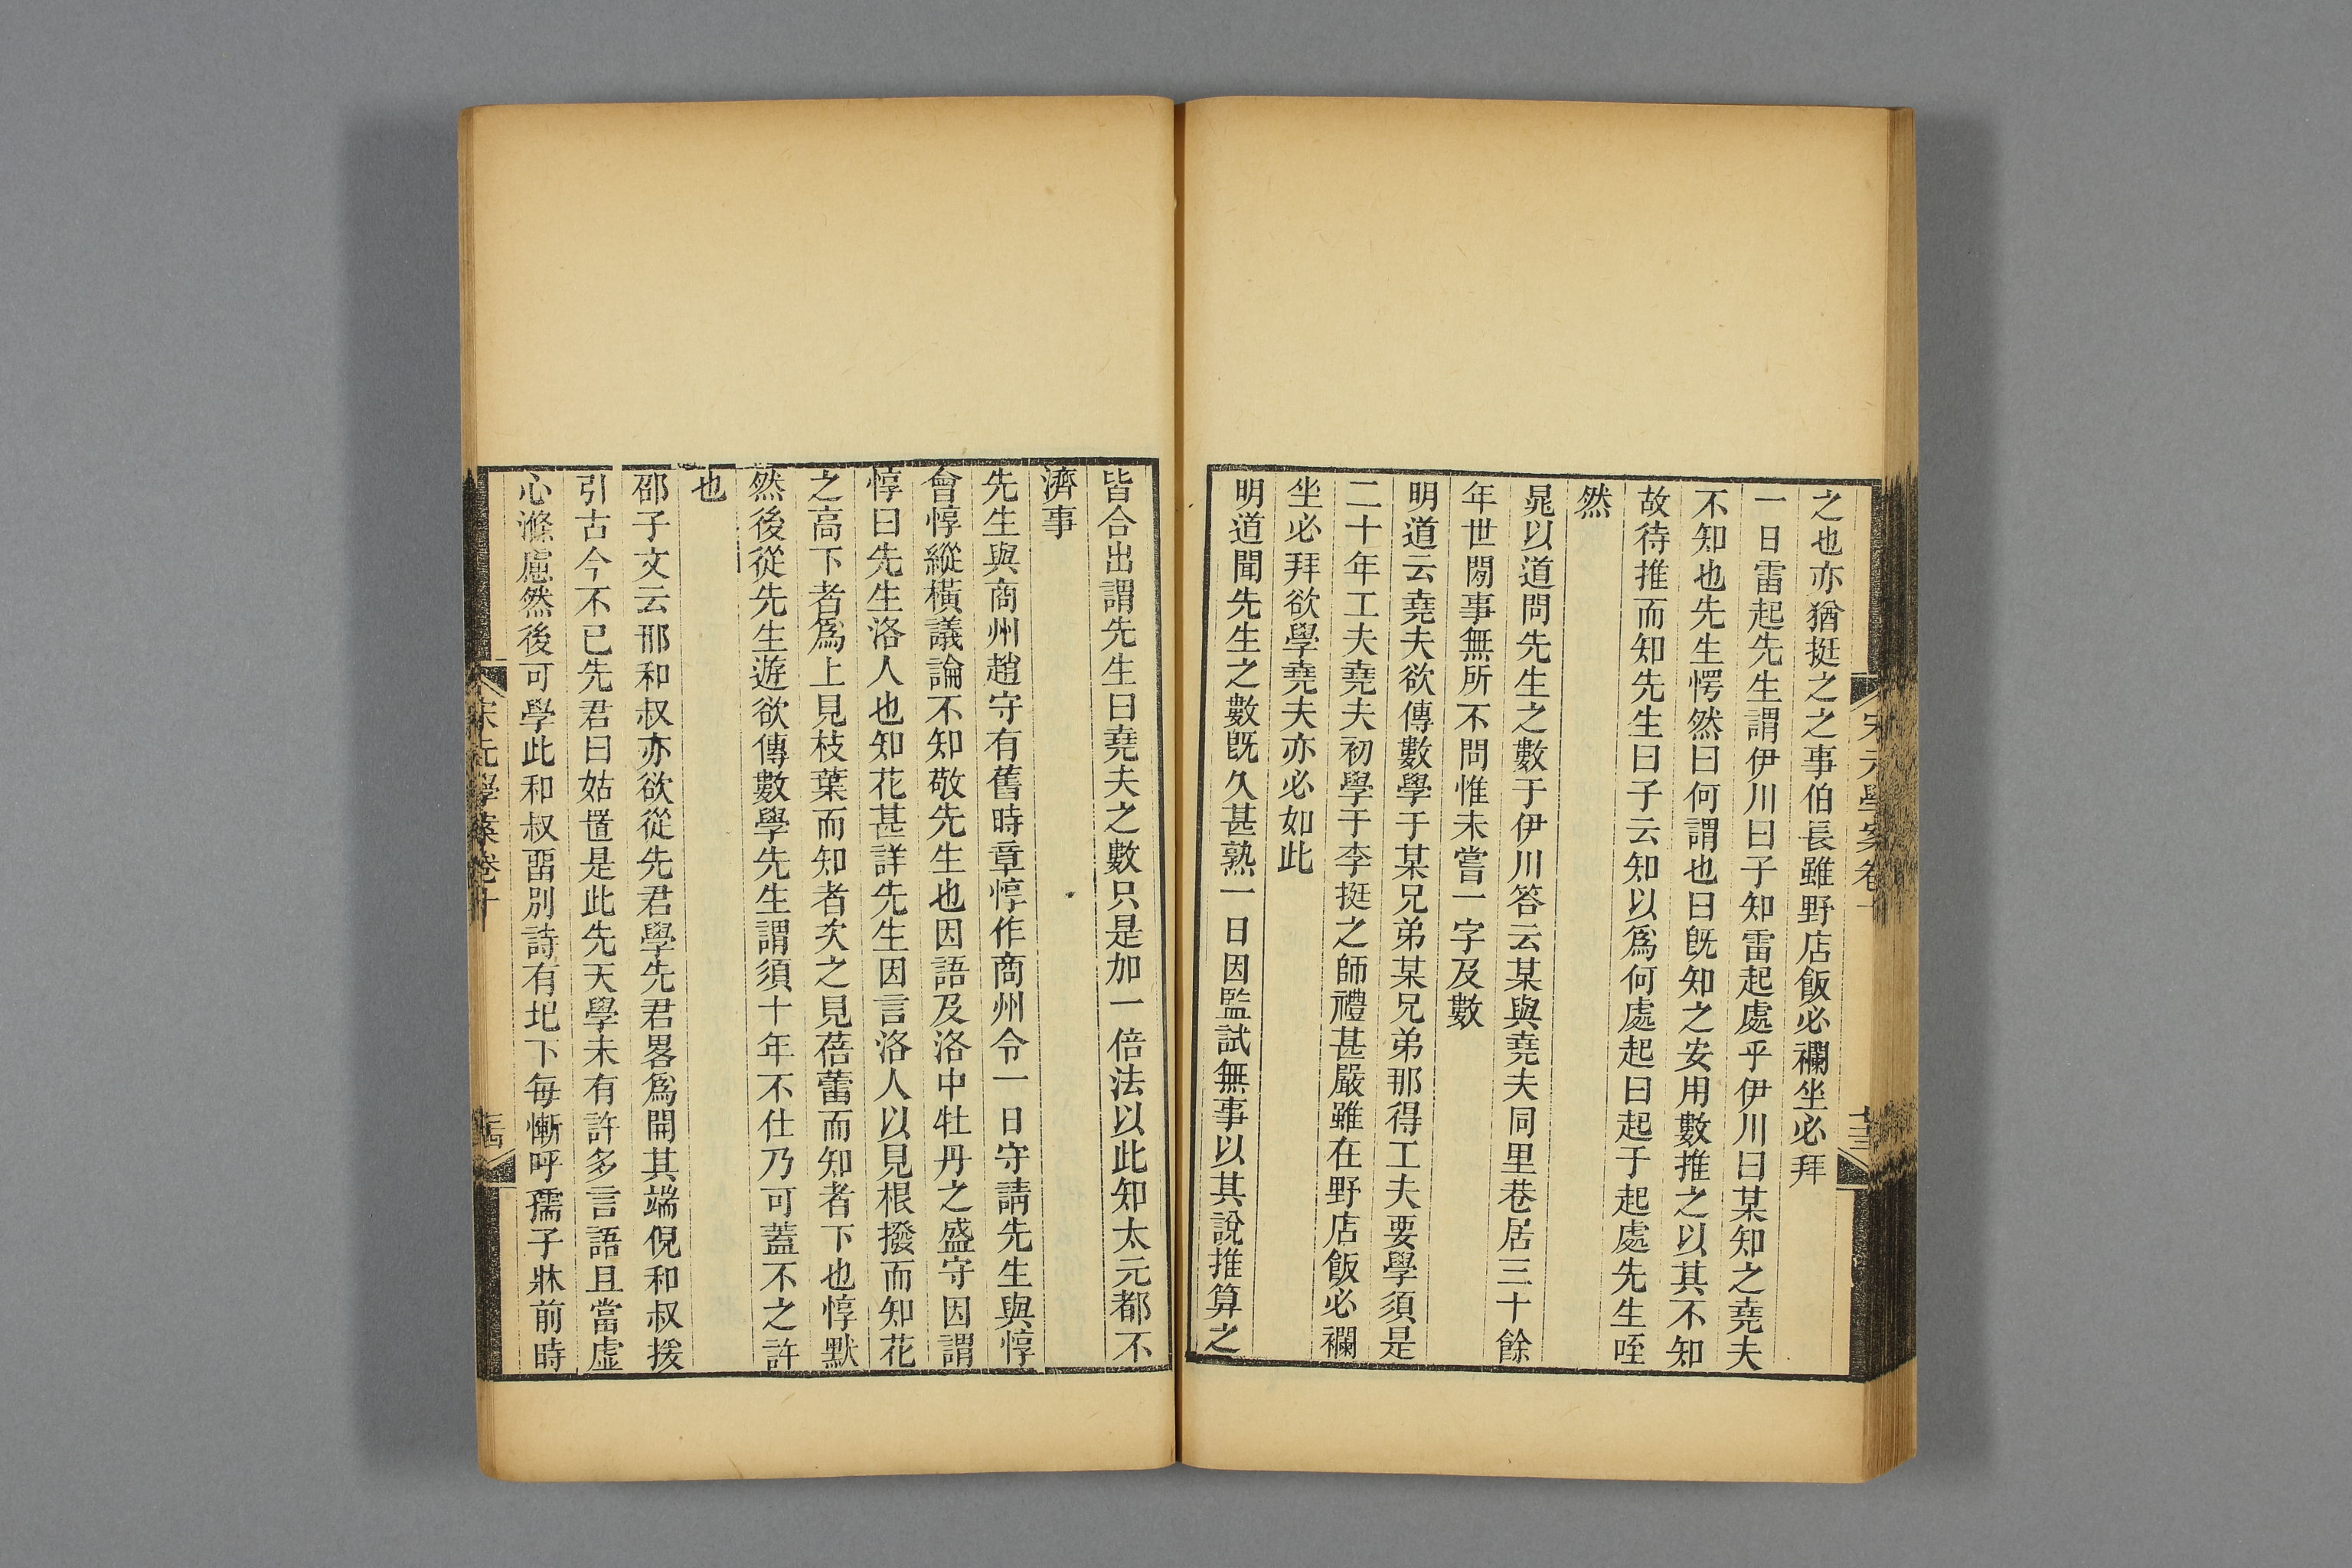 之也亦猶挺之之事伯長雖野店飯必襴坐必拜
一日雷起先生謂伊川曰子知雷起處乎伊川曰某知之堯夫
不知也先生愕然曰何謂也曰旣知之安用數推之以其不知
故待推而知先生曰子云知以爲何處起曰起于起處先生咥
然
晁以道問先生之數于伊川答云某與堯夫同里巷居三十餘
年世閒事無所不問惟未嘗一字及數
明道云堯夫欲傳數學于某兄弟某兄弟那得工夫要學須是
二十年工夫堯夫初學于李挺之師禮甚嚴雖在野店飯必襴
坐必拜欲學堯夫亦必如此
明道聞先生之數旣久甚熟一日因監試無事以其說推算之
皆合出謂先生曰堯夫之數只是加一倍法以此知太元都不
濟事
先生與商州趙守有舊時章惇作商州令一日守請先生與惇
會惇縱橫議論不知敬先生也因語及洛中牡丹之盛守因謂
惇曰先生洛人也知花甚詳先生因言洛人以見根撥而知花
之高下者爲上見枝葉而知者次之見蓓蕾而知者下也惇默
然後從先生遊欲傳數學先生謂須十年不仕乃可蓋不之許
也
邵子文云邢和叔亦欲從先君學先君畧爲開其端倪和叔援
引古今不已先君曰姑置是此先天學未有許多言語且當虛
心滌慮然後可學此和叔畱別詩有圯下每慚呼孺子牀前時
宋元學案卷十